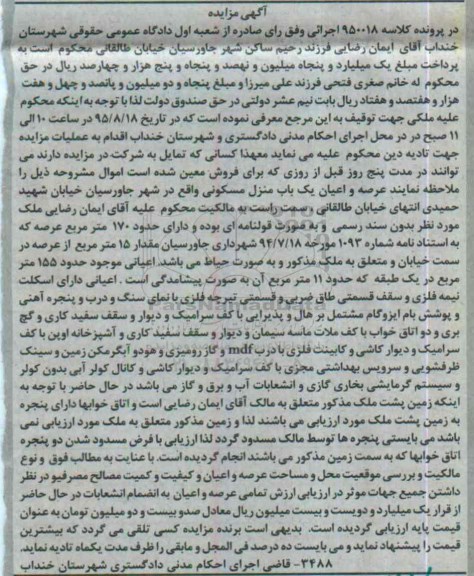 آگهی مزایده
در پرونده کلاسه ۹۵۰۰۱۸ اجرائی وفق رای صادره از شعبه اول دادگاه عمومی حقوقی شهرستان
خنداب آقای ایمان رضایی فرزند رحیم ساکن شهر جاورسیان خیابان طالقانی محکوم است به
پرداخت مبلغ یک میلیارد و پنجاه میلیون و نهصد و پنجاه و پنج هزار و چهارصد ریال در حق
محکوم له خانم صغری فتحی فرزند علی میرزا و مبلغ پنجاه و دو میلیون و پانصد و چهل و هفت
هزار و هفتصد و هفتاد ریال بابت نیم عشر دولتی در حق صندوق دولت لذا با توجه به اینکه محکوم
علیه ملکی جهت توقیف به این مرجع معرفی نموده است که در تاریخ ۹۵/۸/۱۸ در ساعت ۱۰ الی
۱۱ صبح در در محل اجرای احکام مدنی دادگستری و شهرستان خنداب اقدام به عملیات مزایده
جهت تادیه دین محکوم علیه می نماید معهذا کسانی که تمایل به شرکت در مزایده دارند می
توانند در مدت پنج روز قبل از روزی که برای فروش معین شده است اموال مشروحه ذیل را
ملاحظه نمایند عرصه و اعیان یک باب منزل مسکونی واقع در شهر جاورسیان خیابان شهید
حمیدی انتهای خیابان طالقانی سمت راست به مالکیت محکوم علیه آقای ایمان رضایی ملک
مورد نظر بدون سند رسمی و به صورت قولنامه ای بوده و دارای حدود ۱۷۰ متر مربع عرصه که
به استناد نامه شماره ۱۰۹۳ مورخه ۹۴/۷/۱۸ شهرداری جاورسیان مقدار ۱۵ متر مربع از عرصه در
سمت خیابان و متعلق به ملک مذکور و به صورت حیاط می باشد. اعیانی موجود حدود ۱۵۵ متر
مربع در یک طبقه که حدود ۱۱ متر مربع آن به صورت پیشامدگی است . اعیانی دارای اسکلت
نیمه فلزی و سقف قسمتی طاق ضربی و قسمتی تیرچه فلزی با نمای سنگ و درب و پنجره آهنی
و پوشش بام ایزوگام مشتمل بر هال و پذیرایی با کف سرامیک و دیوار و سقف سفید کاری و گچ
بری و دو اتاق خواب با کف ملات ماسه سیمان و دیوار و سقف سفید کاری و آشپزخانه اوپن با کف
سرامیک و دیوار کاشی و کابینت فلزی با درب mdf و گاز رومیزی و هود و آبگرمکن زمین و سینک
ظرفشویی و سرویس بهداشتی مجزی با کف سرامیک و دیوار کاشی و کانال کولر آبی بدون کولر
و سیستم گرمایشی بخاری گازی و انشعابات آب و برق و گاز می باشد در حال حاضر با توجه به
اینکه زمین پشت ملک مذکور متعلق به مالک آقای ایمان رضایی است و اتاق خوابها دارای پنجره
به زمین پشت ملک مورد ارزیابی می باشند لذا و زمین مذکور متعلق به ملک مورد ارزیابی نمی
باشد می بایستی پنجره ها توسط مالک مسدود گردد لذا ارزیابی با فرض مسدود شدن دو پنجره
اتاق خوابها که به سمت زمین مذکور می باشند انجام گردیده است. با عنایت به مطالب فوق و نوع
مالکیت و بررسی موقعیت محل و مساحت عرصه و اعیان و کیفیت و کمیت مصالح مصرفی و در نظر
داشتن جمیع جهات موثر در ارزیابی ارزش تمامی عرصه و اعیان به انضمام انشعابات در حال حاضر
از قرار یک میلیارد و دویست و بیست میلیون ریال معادل صدو بیست و دو میلیون تومان به عنوان
قیمت پایه ارزیابی گردیده است. بدیهی است برنده مزایده کسی تلقی می گردد که بیشترین
قیمت را پیشنهاد نماید و می بایست ده درصد فی المجل و مابقی را ظرف مدت یکماه تادیه نماید.
۳۴۸۸- قاضی اجرای احکام مدنی دادگستری شهرستان خنداب